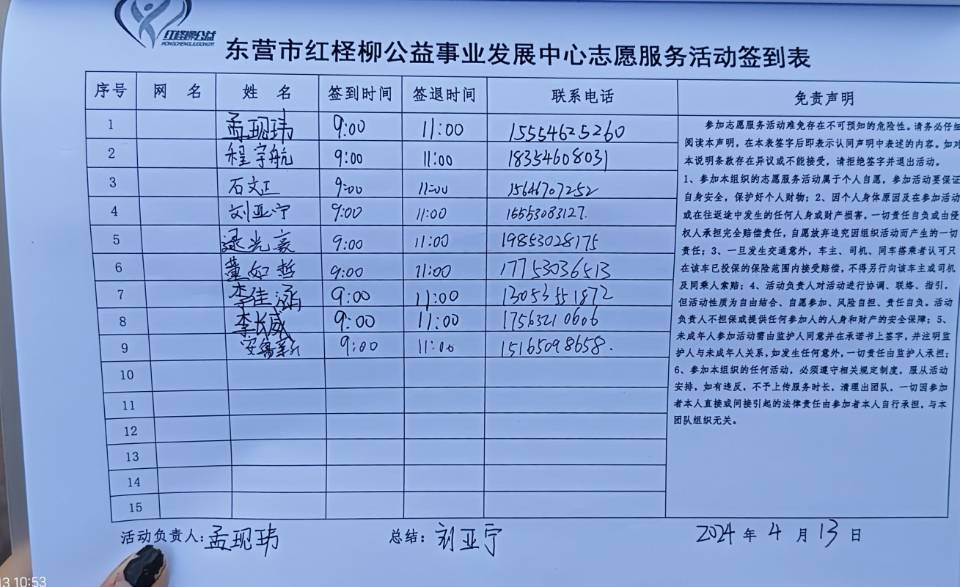 红柽柳公益
东营市红柽柳公益事业发展中心志愿服务活动签到表
序号 网 名 姓 名 签到时间 签退时间 联系电话 免责声明
1 孟现玮 9:00 11:00 15554625260
2 程宇航 9:00 11:00 18354608031
3 石文正 9:00 11:00 15646707252
4 刘亚宁 9:00 11:00 15553083127.
5 9:00 11:00 19853028175
6 董如哲 9:00 11:00 17753036513
7 李佳涵 9:00 11:00 13053551872
8 李长威 9:00 11:00 17563210606
9 9:00 11:00 15165098658.
10
11
12
13
14
15
参加志愿服务活动难免存在不可预知的危险性。请务必仔细
阅读本声明，在本表签字后即表示认同声明中表述的内容。如对
本说明条款存在异议或不能接受，请拒绝签字并退出活动。
1、参加本组织的志愿服务活动属于个人自愿，参加活动要保证
自身安全，保护好个人财物；2、因个人身体原因及在参加活动
或在往返途中发生的任何人身或财产损害，一切责任自负或由侵
权人承担完全赔偿责任，自愿放弃追究因组织活动而产生的一切
责任；3、一旦发生交通意外，车主、司机、同车搭乘者认可只
在该车已投保的保险范围内接受赔偿，不得另行向该车主或司机
及同乘人索赔；4、活动负责人对活动进行协调、联络、指引，
但活动性质为自由结合、自愿参加、风险自担、责任自负。活动
负责人不担保或提供任何参加人的人身和财产的安全保障；5、
未成年人参加活动需由监护人同意并在承诺书上签字，并注明监
护人与未成年人关系，如发生任何意外，一切责任由监护人承担；
6、参加本组织的任何活动，必须遵守相关规定制度，服从活动
安排，如有违反，不予上传服务时长，清理出团队，一切因参加
者本人直接或间接引起的法律责任由参加者本人自行承担，与本
团队组织无关。
活动负责人：孟现玮 总结：刘亚宁 2024 年 4 月 13 日
3 10:53